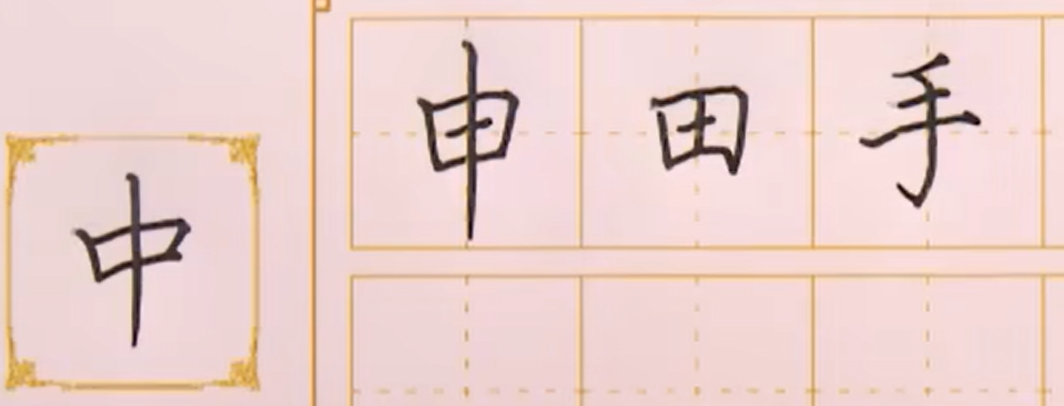 中
申田手